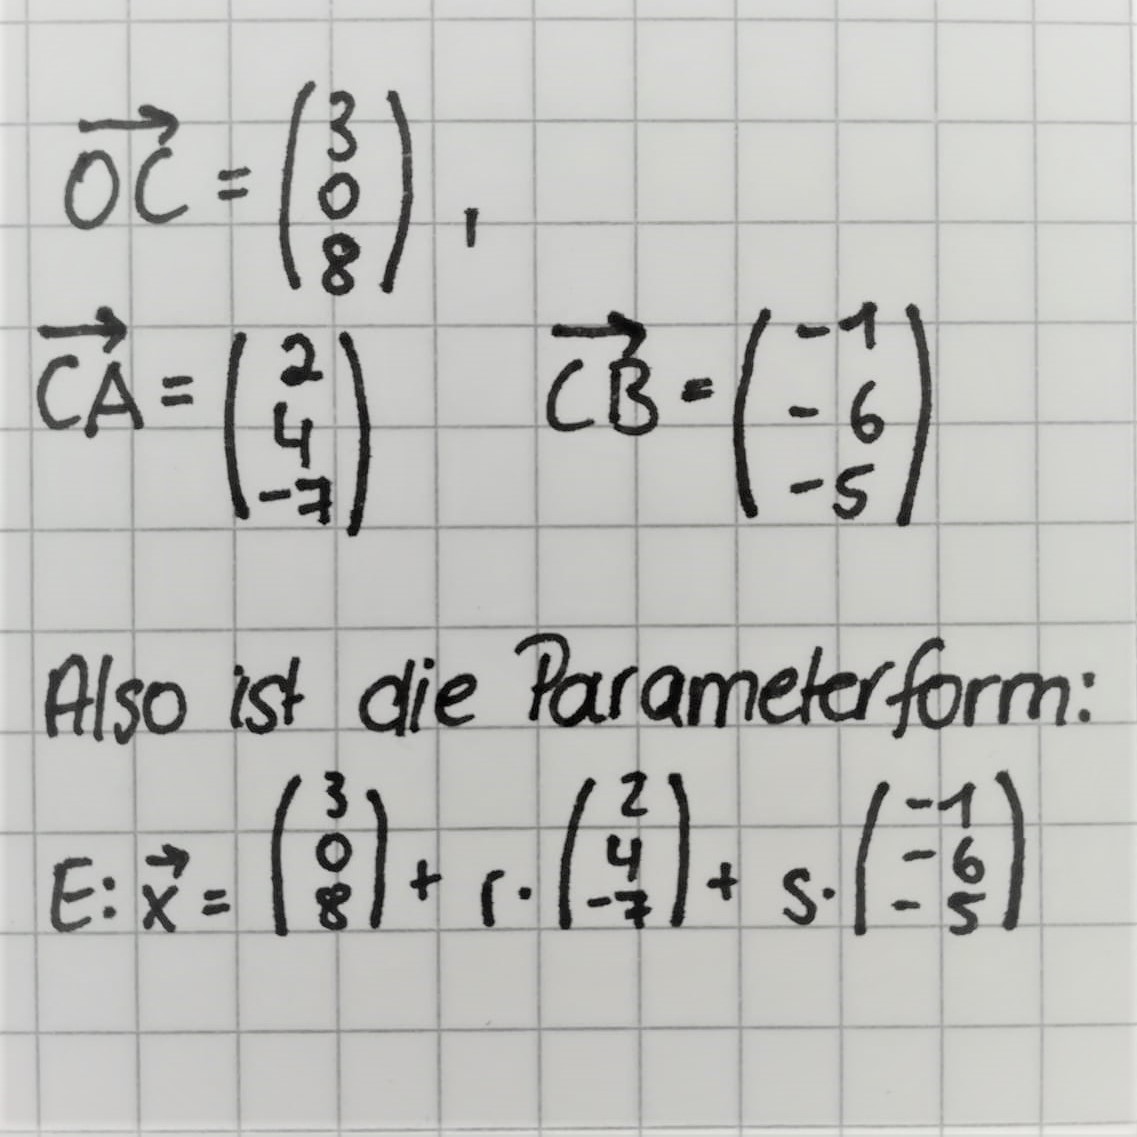 $\overrightarrow{OC} = \begin{pmatrix} 3 \\ 0 \\ 8 \end{pmatrix},$
$\overrightarrow{CA} = \begin{pmatrix} 2 \\ 4 \\ -7 \end{pmatrix} \quad \overrightarrow{CB} = \begin{pmatrix} -1 \\ -6 \\ -5 \end{pmatrix}$
Also ist die Parameterform:
$E: \vec{x} = \begin{pmatrix} 3 \\ 0 \\ 8 \end{pmatrix} + r \cdot \begin{pmatrix} 2 \\ 4 \\ -7 \end{pmatrix} + s \cdot \begin{pmatrix} -1 \\ -6 \\ -5 \end{pmatrix}$